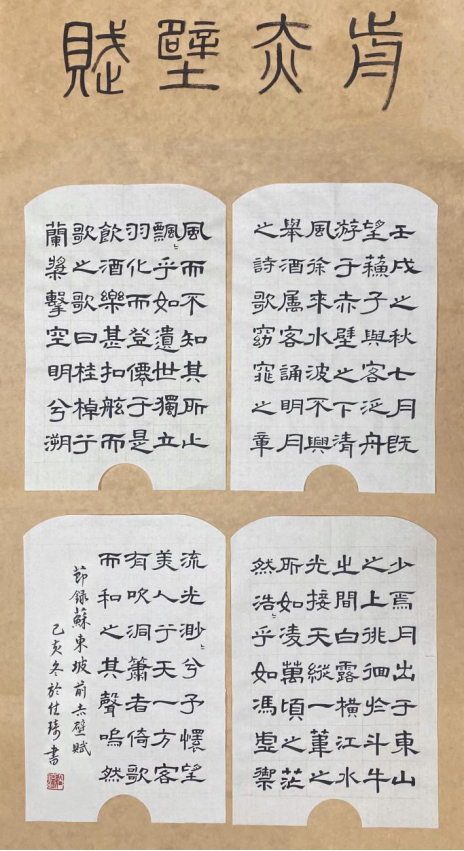 前赤壁賦
壬戌之秋七月既
望蘇子與客泛舟
游于赤壁之下清
風徐來水波不興
舉酒属客誦明月
之詩歌窈窕之章
少焉月出于東山
之上徘徊於斗牛
之間白露橫江水
光接天縱一葦之
所如凌萬頃之茫
然浩〻乎如馮虛禦
風而不知其所止
飄〻乎如遺世獨立
羽化而登僊于是
飲酒樂甚扣舷而
歌之歌曰桂棹兮
蘭槳擊空明兮溯
流光渺〻兮予懷望
美人兮天一方客
有吹洞簫者倚歌
而和之其聲嗚然
節錄蘇東坡前赤壁賦
己亥冬於仕琦書